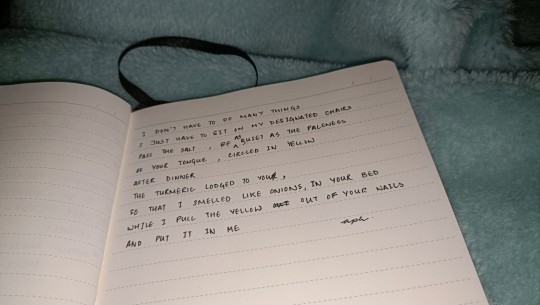 I DON'T HAVE TO DO MANY THINGS
I JUST HAVE TO SIT ON MY DESIGNATED CHAIRS
PASS THE SALT, BE AS QUIET AS THE PALENESS
OF YOUR TONGUE, CIRCLED IN YELLOW
AFTER DINNER
THE TURMERIC LODGED TO YOUR,
SO THAT I SMELLED LIKE ONIONS, IN YOUR BED
WHILE I PULL THE YELLOW OUT OF YOUR NAILS
AND PUT IT IN ME